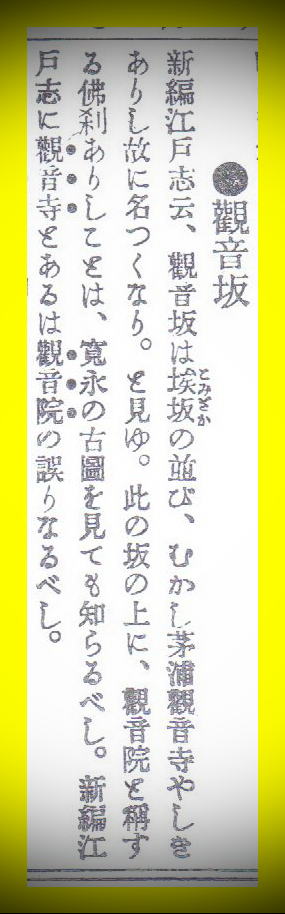 ●觀音坂
新編江戸志云、觀音坂は埃坂の並び、むかし茅浦觀音寺やしき
とみざか
ありし故に名つくなり。と見ゆ。此の坂の上に、觀音院と稱す
る佛刹ありしことは、寬永の古圖を見ても知らるべし。新編江
戸志に觀音寺とあるは觀音院の誤りなるべし。